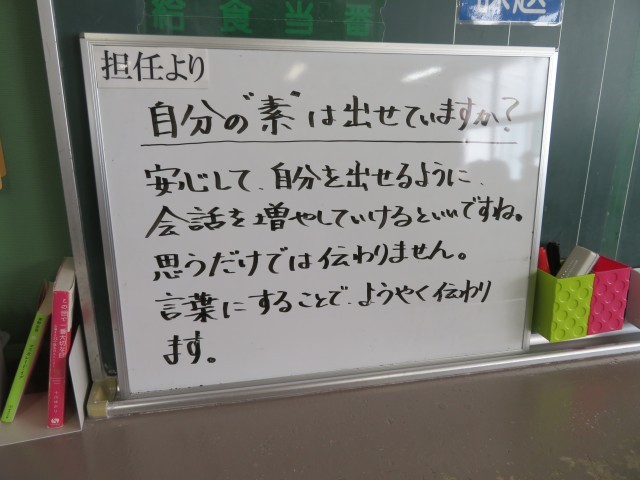 給食当番
担任より
自分の"素"は出せていますか?
安心して、自分を出せるように、
会話を増やしていけるといいですね。
思うだけでは伝わりません。
言葉にすることで、ようやく伝わり
ます。